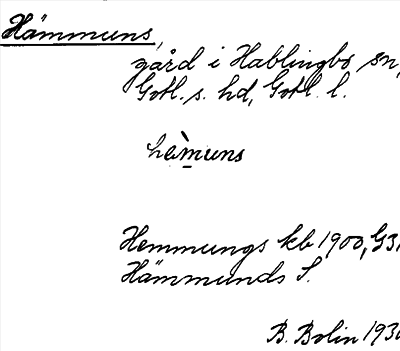 Hämmuns,
gård i Hablingbo sn,
Gotl. s. hd, Gotl. l.
hèmuns
Hemmungs kb 1900, G3.
Hämmunds S.
B. Bolin 193